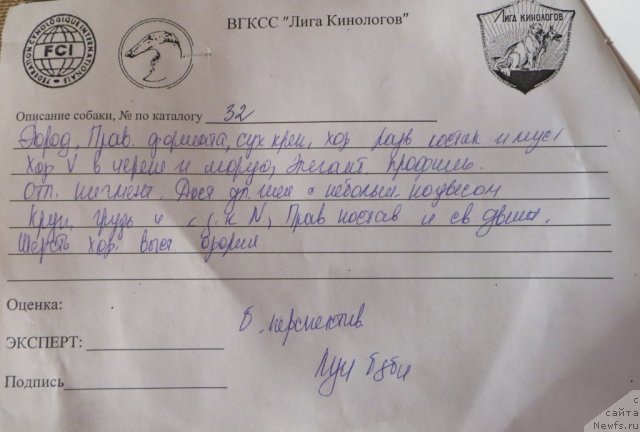 ВГКСС "Лига Кинологов"
FEDERATION CYNOLOGIQUE INTERNATIONALE
FCI
ЛИГА КИНОЛОГОВ
Описание собаки, № по каталогу 32
Пород, Прав. формата, сух креп, хор разв костяк и мус
Хор V в черепе и морде, Элегант. профиль.
Отл. пигмент. Дост дл. шея с небольш. подвесом
Круп, грудь и N, Прав постав и св. движ.
Шерсть хор. выст форма
Оценка:
б. перспектив
ЭКСПЕРТ:
Подпись
с
сайта
Newfs.ru